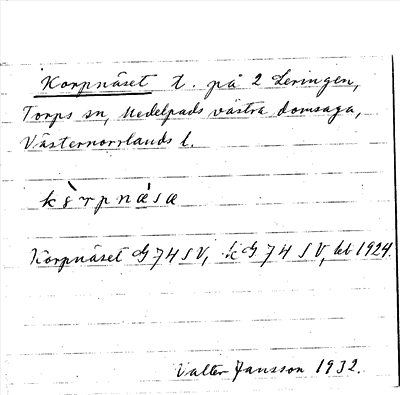 Korpnäset t. på 2 Leringen,
Torps sn, Medelpads västra domsaga,
Västernorrlands l.
kòrpnǽsæ
Korpnäset G 74 SV, k G 74 SV, bet 1924.
Valter Jansson 1932.